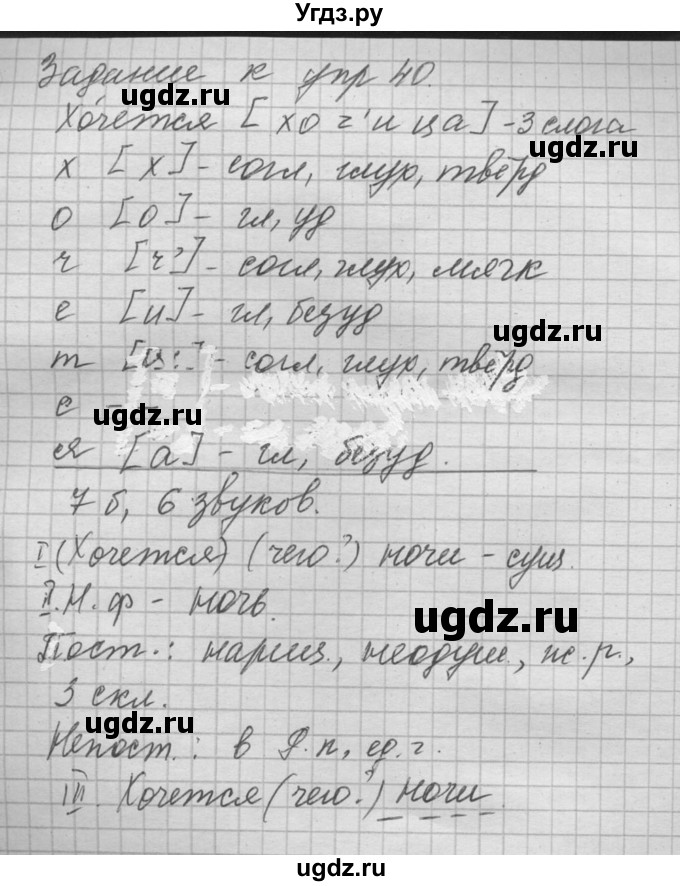 Угдз.ру
Задание к упр 40.
ugdz.ru
Хо́чется [хоч'ица] - 3 слога
ugdz.ru
х [х] - согл, глух, твёрд
о [о] - гл, уд
ч [ч'] - согл, глух, мягк
ugdz.ru
е [и] - гл, безуд
ugdz.ru
т [ц:] - согл, глух, твёрд
с -
ugdz.ru
я [а] - гл, безуд.
7 б, 6 звуков.
ugdz.ru
I (Хочется) (чего?) ночи - сущ.
II. Н. ф - ночь.
ugdz.ru
Пост.: нариц., неодуш., ж. р.,
3 скл.
ugdz.ru
Непост.: в Р. п, ед. ч.
III. Хочется (чего?) ночи.
ugdz.ru